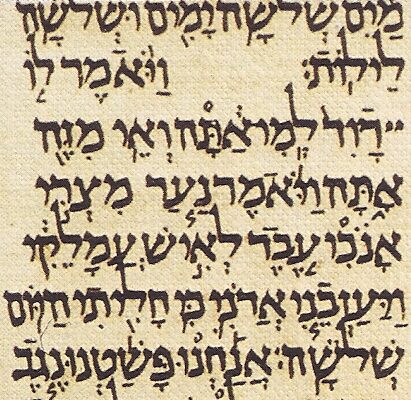 מַיִם שְׁלֹשָׁה יָמִים וּשְׁלֹשָׁה
לֵילוֹת׃ וַיֹּאמֶר לוֹ
דָוִד לְמִי אַתָּה וְאֵי מִזֶּה
אָתָּה וַיֹּאמֶר נַעַר מִצְרִי
אָנֹכִי עֶבֶד לְאִישׁ עֲמָלֵקִי
וַיַּעַזְבֵנִי אֲדֹנִי כִּי חָלִיתִי הַיּוֹם
שְׁלֹשָׁה׃ אֲנַחְנוּ פָּשַׁטְנוּ נֶגֶב